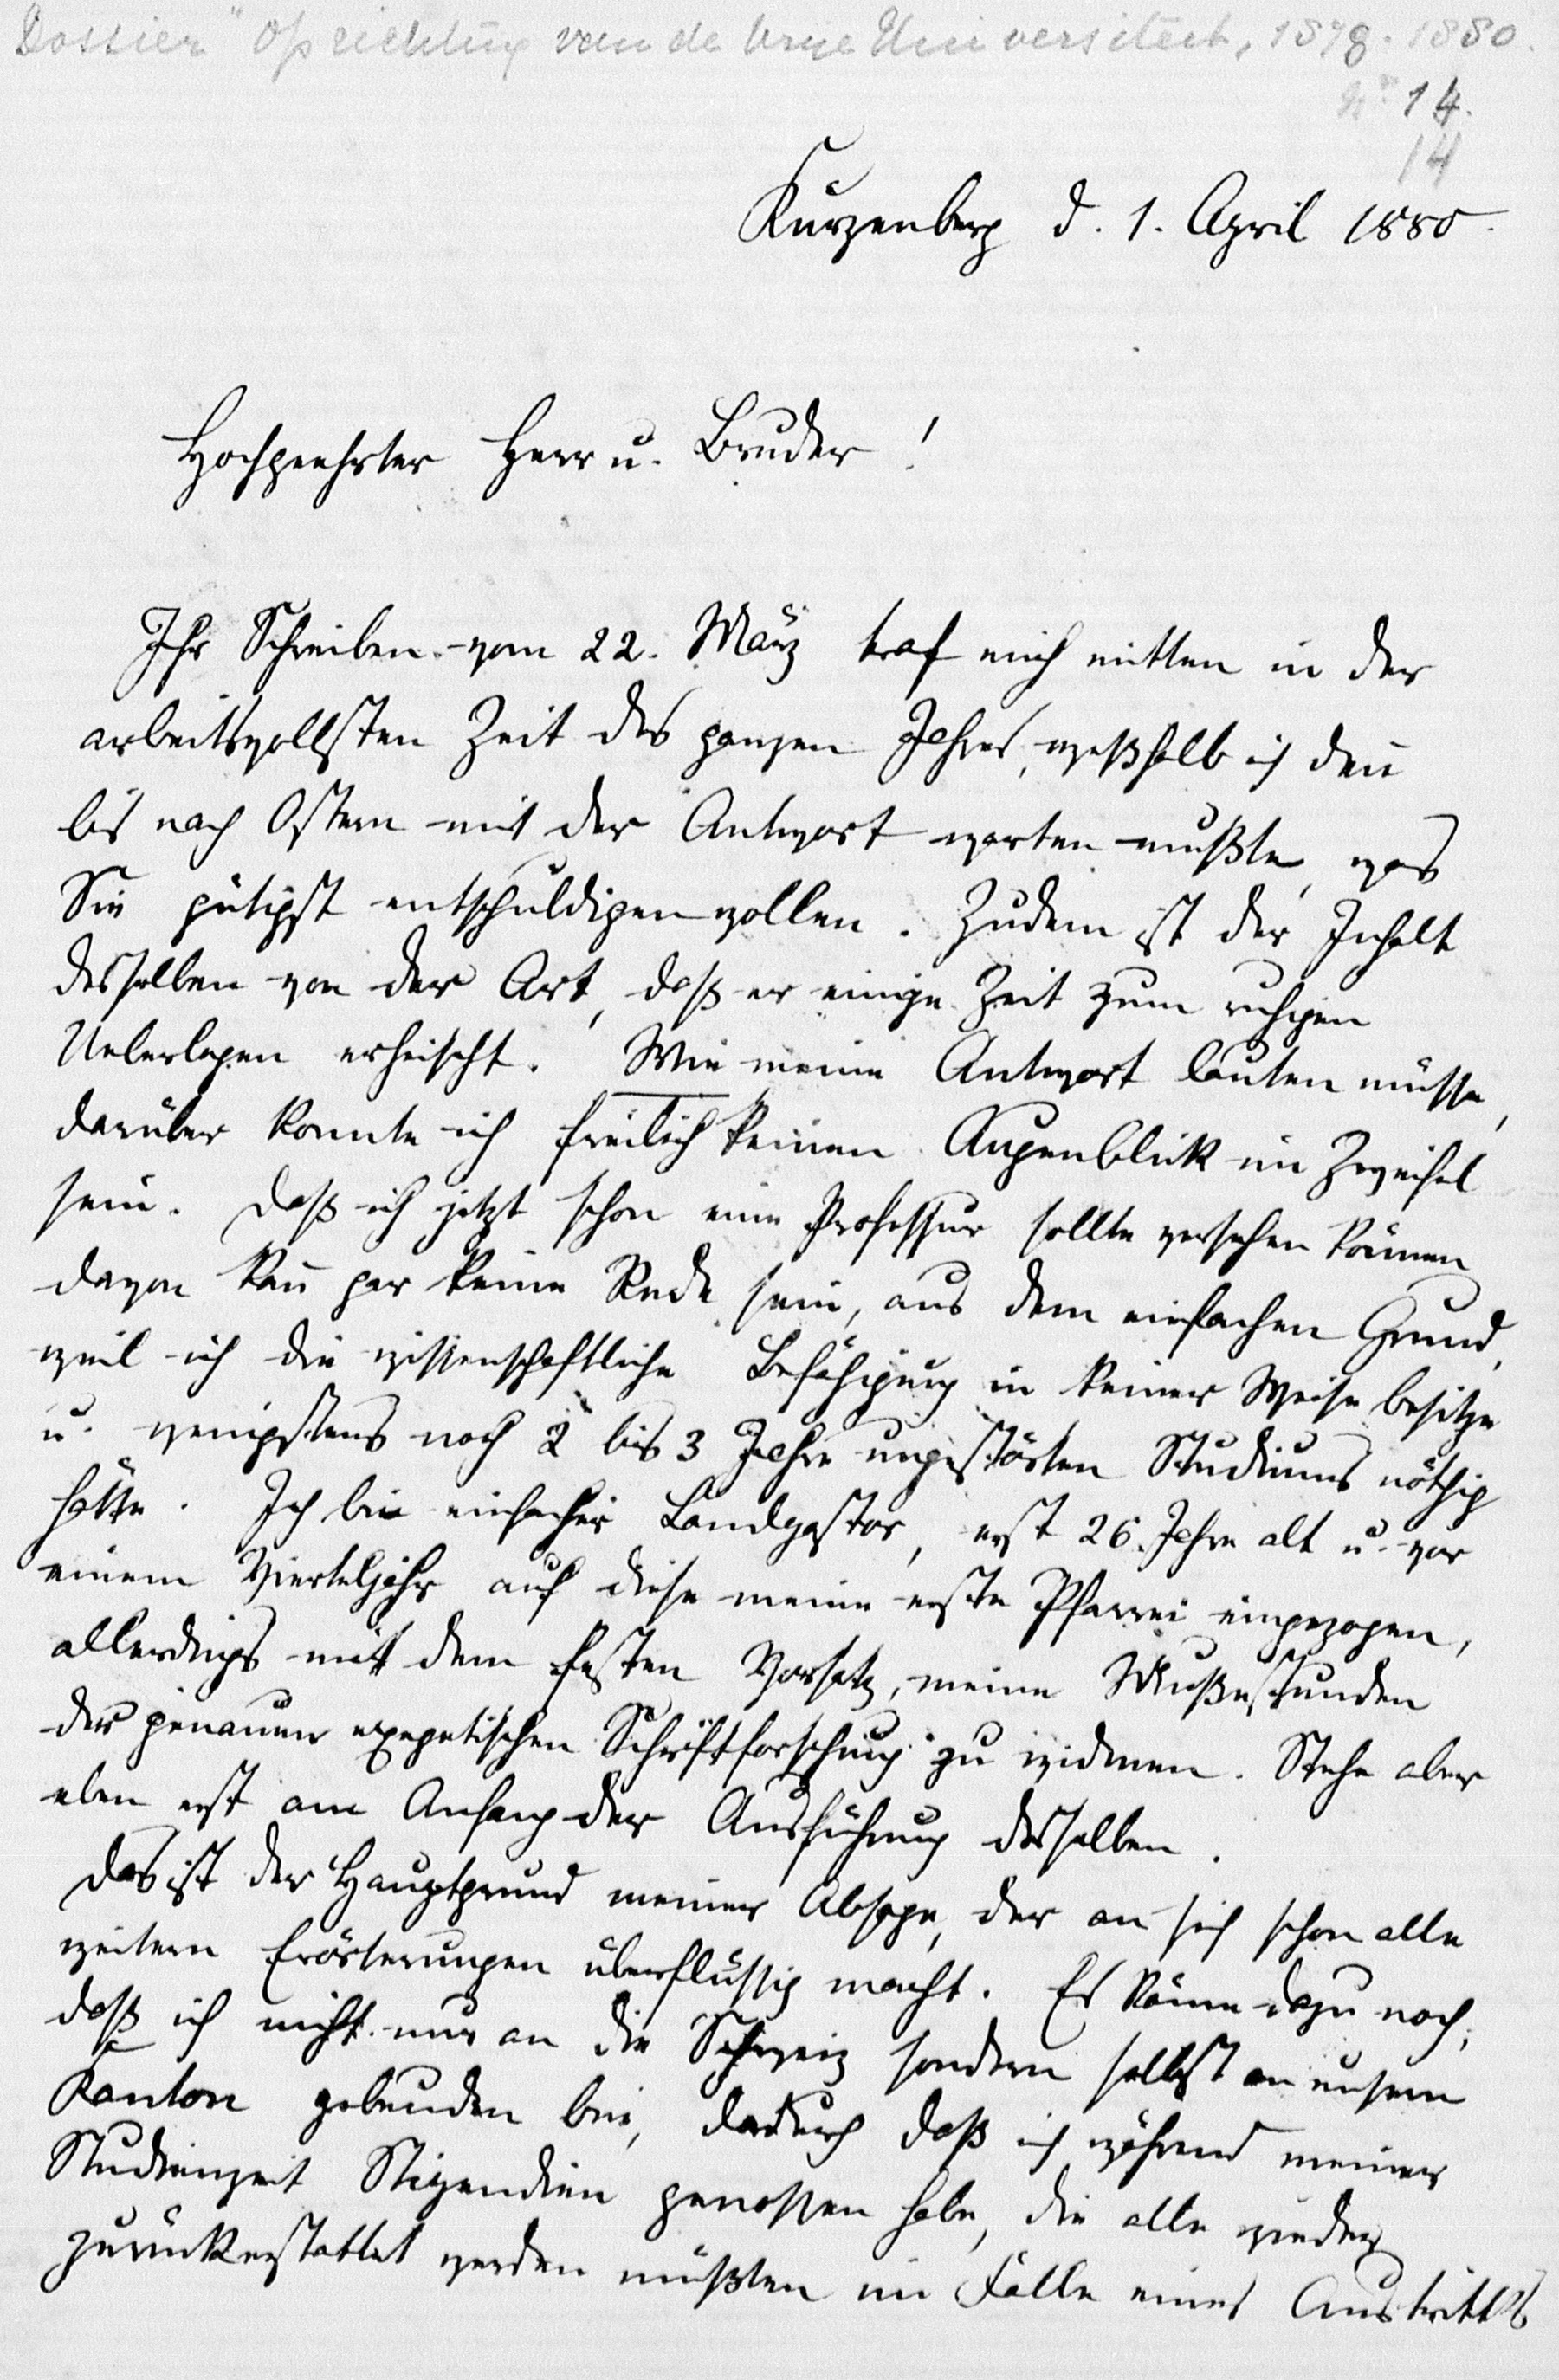 Dossier "Oprichting van de Vrije Universiteit, 1878-1880.
No 14.
14
Kurzenberg d. 1. April 1880.
Hochgeehrter Herr u. Bruder!
Ihr Schreiben vom 22. März traf mich mitten in der
arbeitsvollsten Zeit des ganzen Jahres, weßhalb ich den̄
bis nach Ostern mit der Antwort warten mußte, was
Sie gütigst entschuldigen wollen. Zudem ist der Inhalt
desselben von der Art, daß er einige Zeit zum ruhigen
Ueberlegen erheischt. Wie meine Antwort lauten müsse,
darüber konnte ich freilich keinen Augenblick im Zweifel
sein. Daß ich jetzt schon eine Professur sollte versehen können
davon kan̄ gar keine Rede sein, aus dem einfachen Grund,
weil ich die wissenschaftliche Befähigung in keiner Weise besitze
u. wenigstens noch 2 bis 3 Jahre ungestörten Studiums nöthig
hätte. Ich bin einfacher Landpastor, erst 26 Jahre alt u. vor
einem Vierteljahr auf diese meine erste Pfarrei eingezogen,
allerdings mit dem festen Vorsatz, meine Mußestunden
der genauen exegetischen Schriftforschung zu widmen. Stehe aber
eben erst am Anfang der Ausführung desselben.
Das ist der Hauptgrund meiner Absage, der an sich schon alle
weitern Erörterungen überflüssig macht. Es käme dazu noch,
daß ich nicht nur an die Schweiz sondern selbst an unsern
Kanton gebunden bin, dadurch daß ich während meiner
Studienzeit Stipendien genossen habe, die alle wieder
zurückerstattet werden müßten im Falle eines Austritts